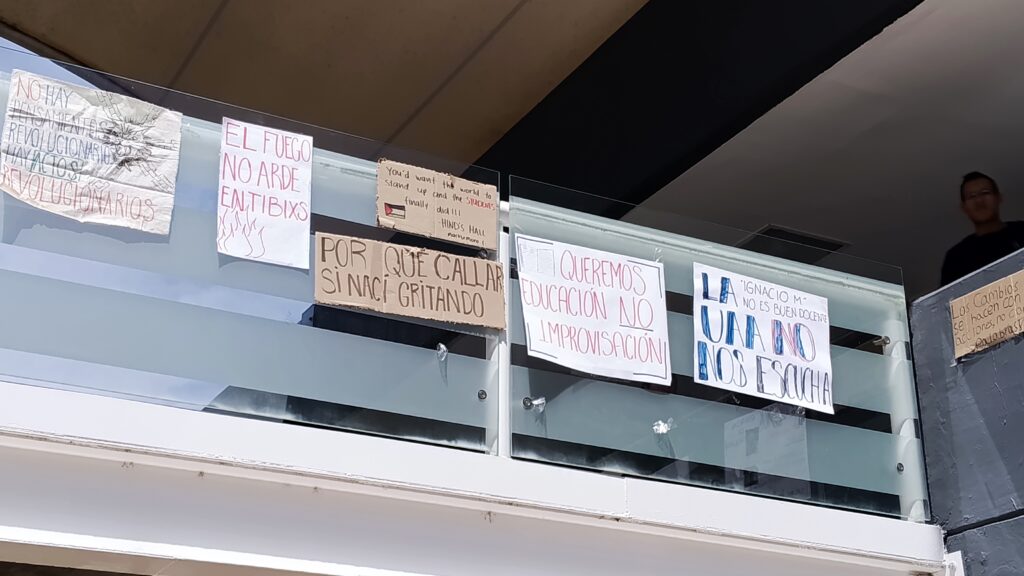 NO HAY
REVOLUCIONARIOS
HAY ACTOS
REVOLUCIONARIOS
EL FUEGO
NO ARDE
EN TIBIXS
You'd want the world to
stand up and the STUDENTS
finally did !!!
HIND'S HALL
POR QUÉ CALLAR
SI NACÍ GRITANDO
QUEREMOS
EDUCACIÓN NO
IMPROVISACIÓN
LA "IGNACIO M"
NO ES BUEN DOCENTE
UAA NO
NOS ESCUCHA
Los Cambios
se hacen con
acciones, no con
palabras